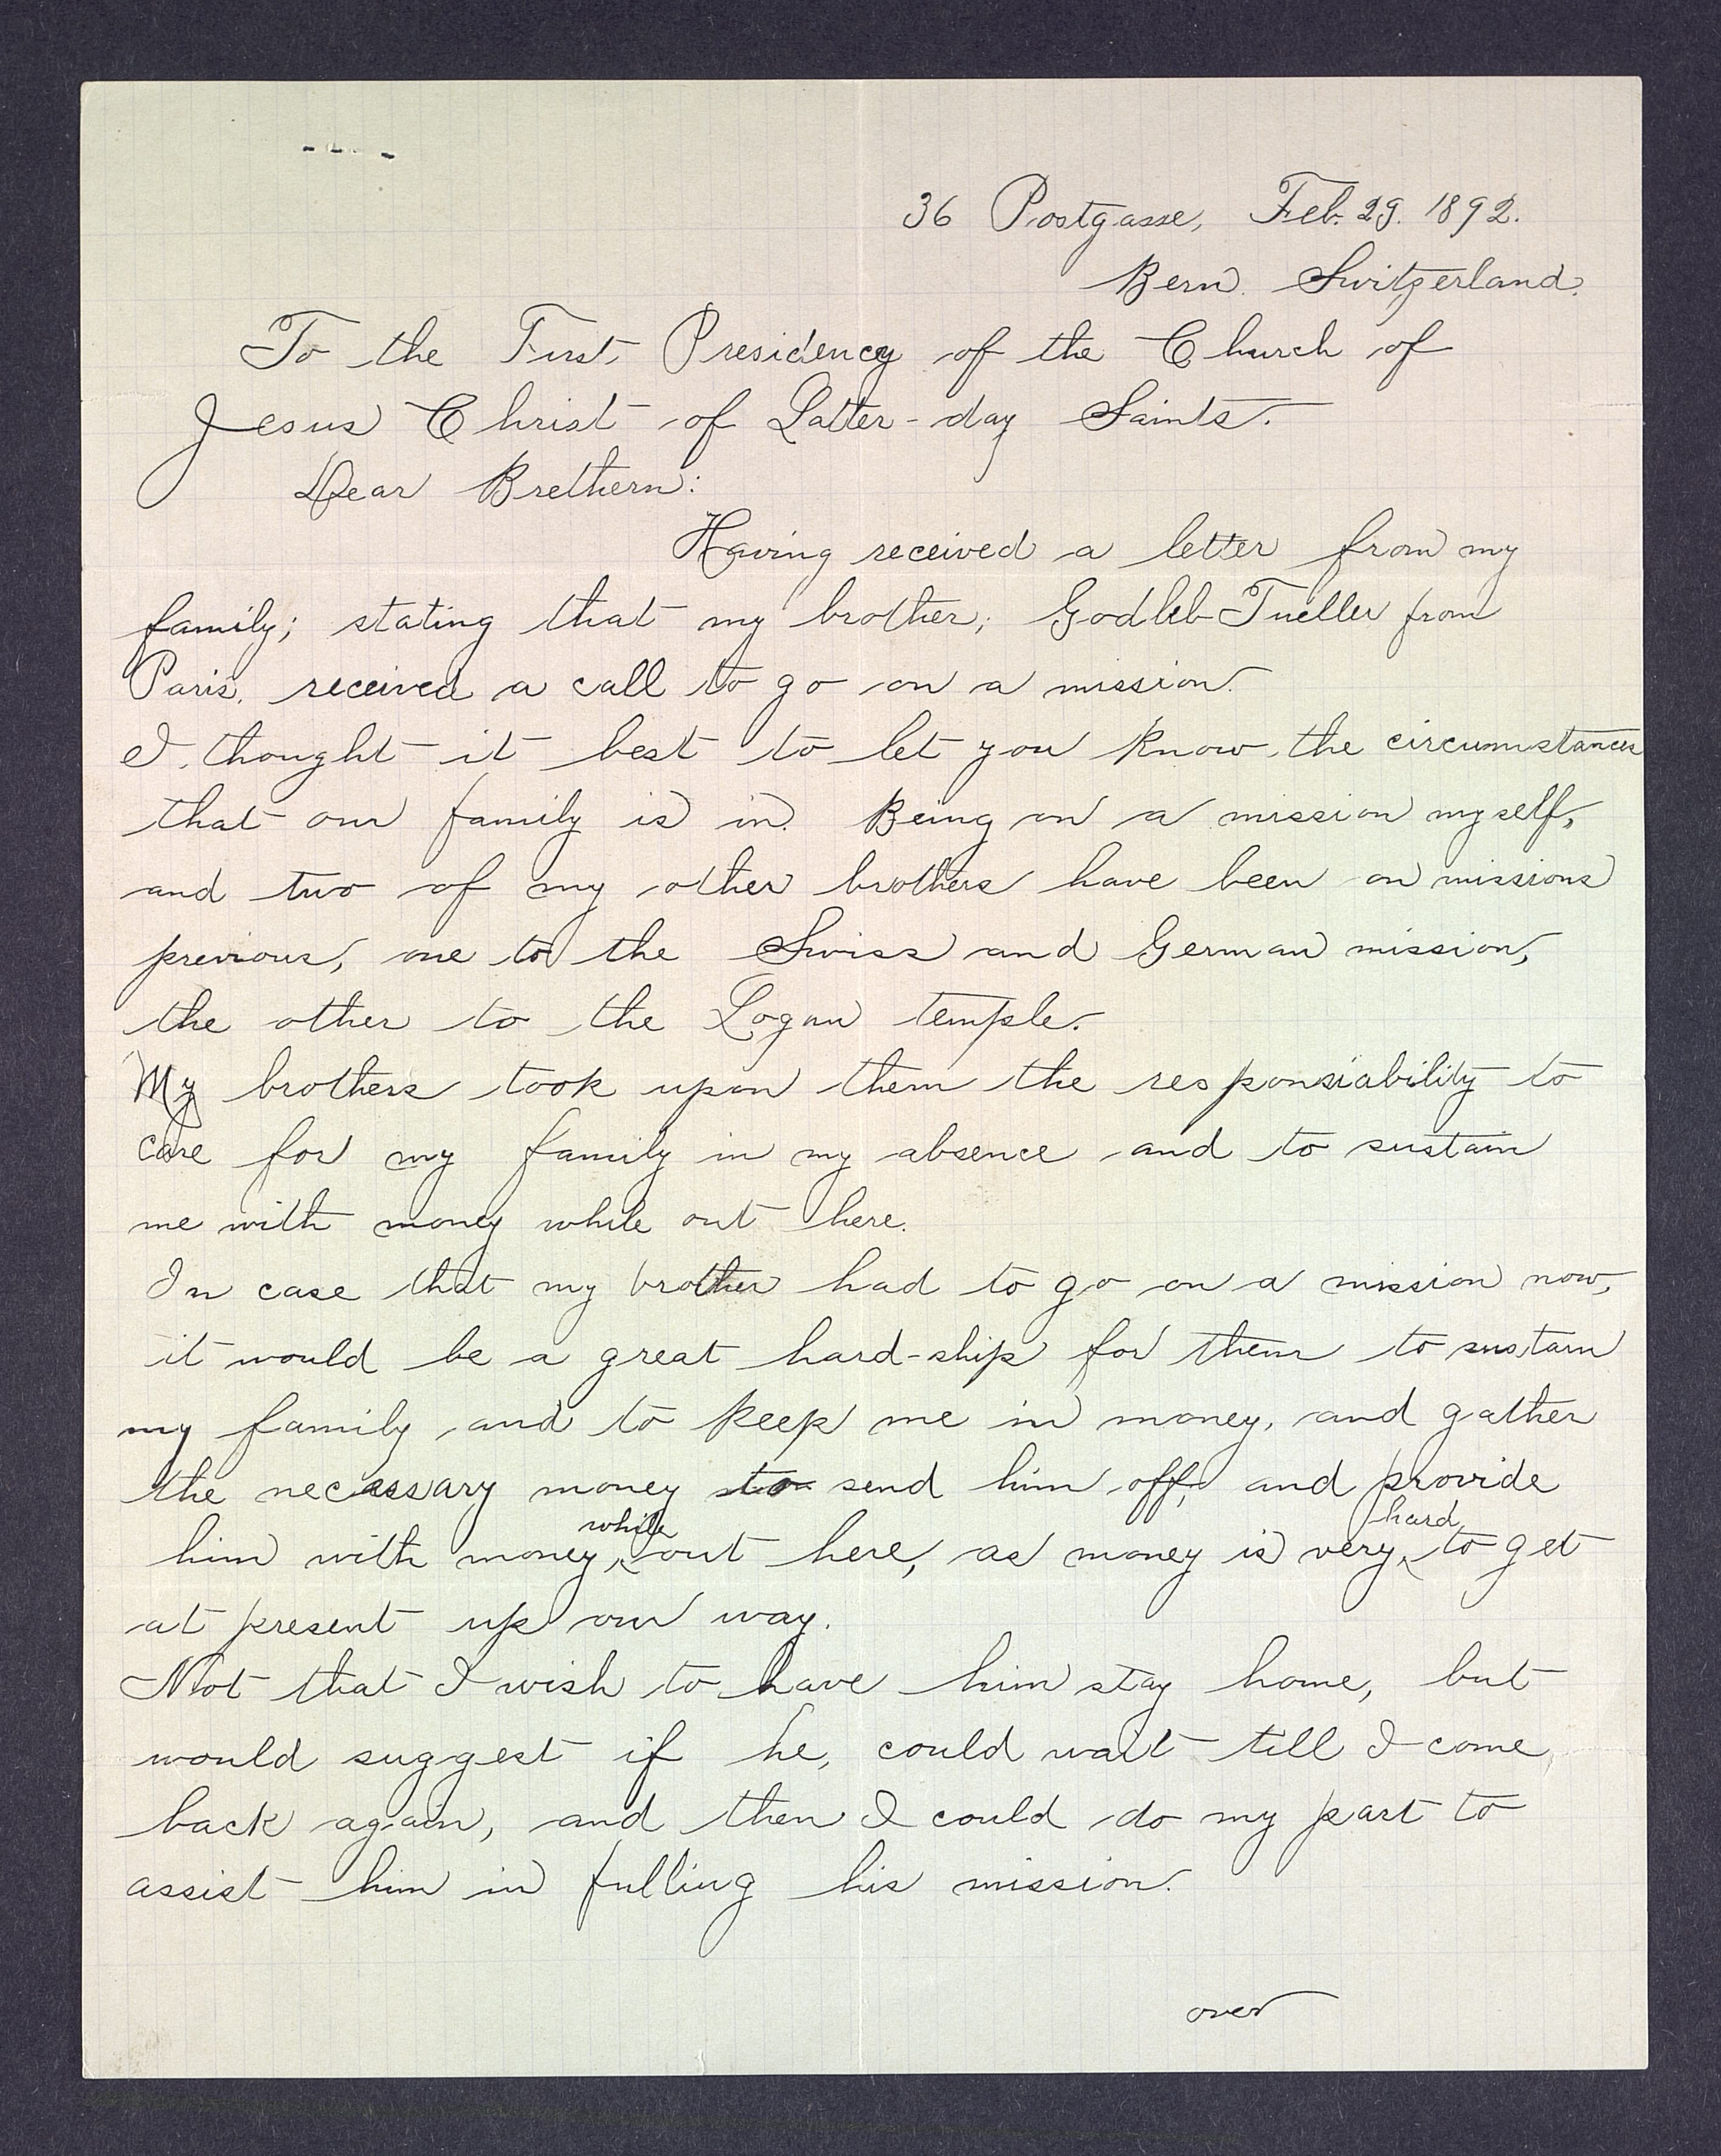 36 Postgasse, Feb. 29. 1892.
Bern. Switzerland.
To the First Presidency of the Church of
Jesus Christ of Latter-day Saints.
Dear Brethern:
Having received a letter from my
family; stating that my brother; Godlieb Tueller from
Paris, received a call to go on a mission.
I thought it best to let you know the circumstances
that our family is in. Being on a mission myself,
and two of my other brothers have been on missions
previous, one to the Swiss and German mission,
the other to the Logan temple.
My brothers took upon them the responsiability to
care for my family in my absence and to sustain
me with money while out here.
In case that my brother had to go on a mission now,
it would be a great hard-ship for them to sustain
my family and to keep me in money, and gather
the necessary money to send him off, and provide
while hard
him with money, out here, as money is very to get
at present up our way.
Not that I wish to have him stay home, but
would suggest if he, could wait till I come
back again, and then I could do my part to
assist him in fulling his mission.
over